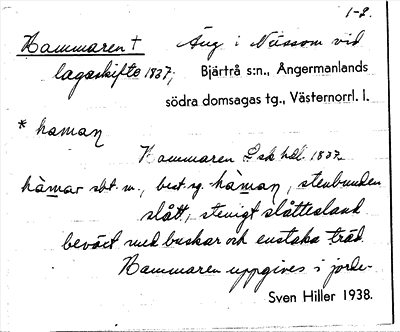 1-2.
Hammaren † Äng i Nässom vid
lagaskifte 1837, Bjärtrå s:n., Ångermanlands
södra domsagas tg., Västernorrl. l.
* haman
Hammaren Lsk hdl. 1837
hàmar sbt. m., best. sg. hàman, stenbunden
slått, stenigt slåttesland
beväxt med buskar och enstaka träd.
Hammaren uppgives i jorde-
Sven Hiller 1938.